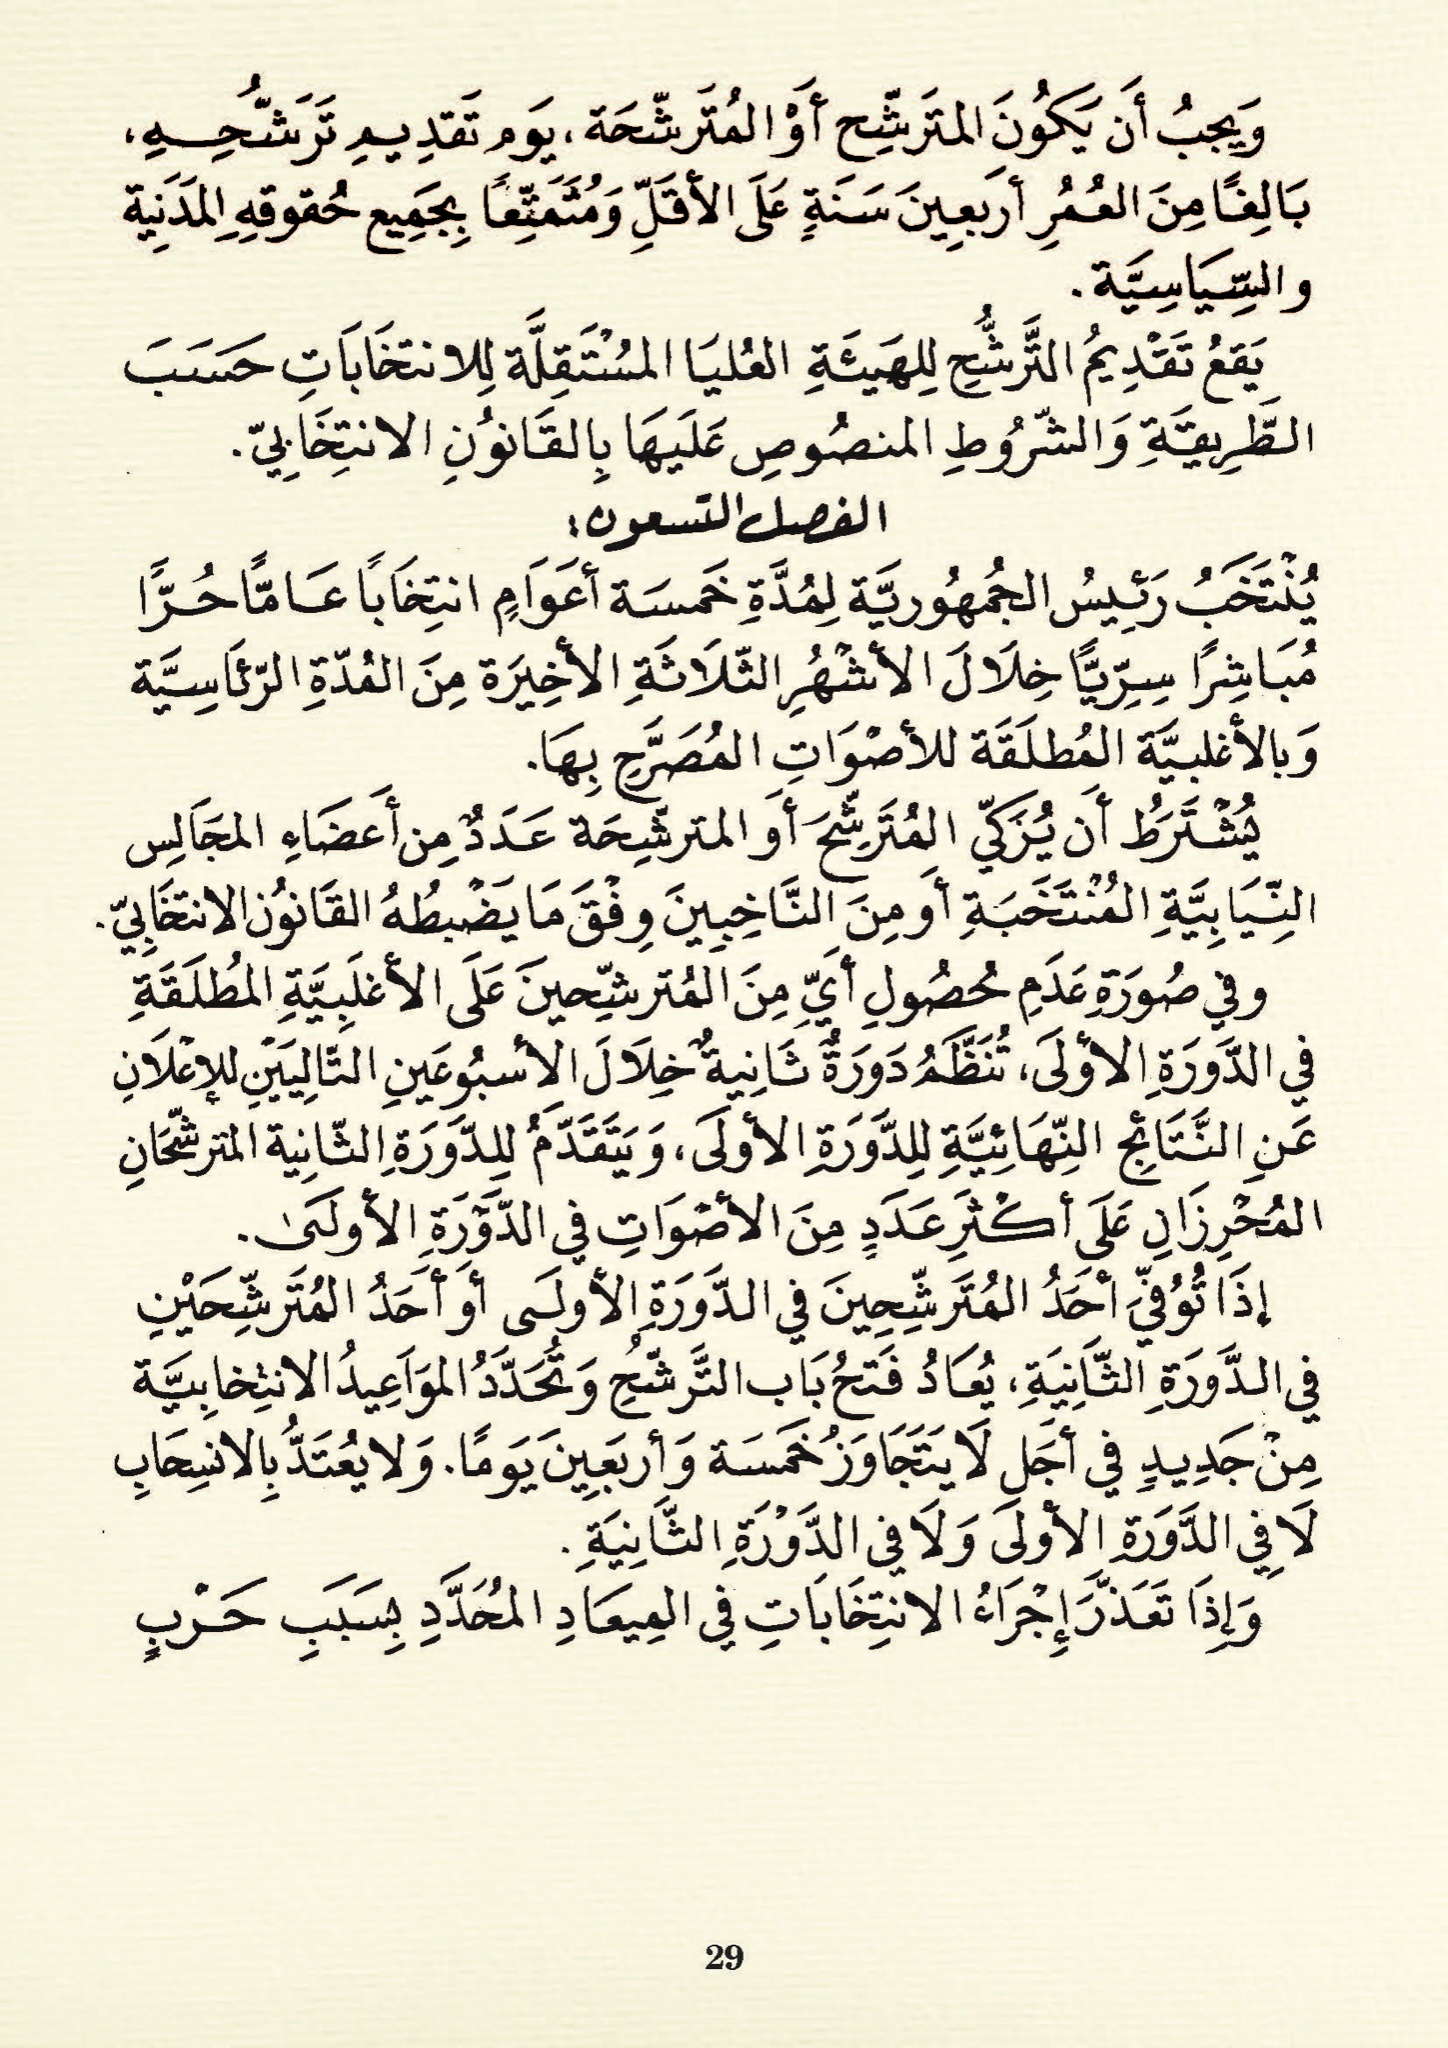 وَيَجِبُ أَن يَكُونَ المتَرَشِّح أَوْ المُتَرَشِّحَة، يَوم تَقدِيمِ تَرَشُّحِهِ،
بَالِغًا مِنَ العُمُرِ أَربَعِينَ سَنَةٍ عَلَى الأقَلِّ وَمُتَمَتِّعًا بِجَمِيع حُقوقِهِ المَدَنِية
والسِّيَاسِيَّة.
يَقعُ تَقْدِيمُ التَّرَشُّحِ لِلهَيئَةِ العُليَا المسْتَقِلَّة لِلانتخَابَاتِ حَسَبَ
الطَّرِيقَةِ وَالشّرُوطِ المنصُوصِ عَلَيهَا بِالقَانُونِ الانتِخَابِيّ.
الفصل التسعون:
يُنْتَخَبُ رَئِيسُ الجُمهُوريَّة لِمُدَّةِ خَمسَة أعَوَامٍ انتِخَابًا عَامًّا حُرًّا
مُبَاشِرًا سِرِّيًّا خِلَالَ الأشْهُرِ الثّلَاثَةِ الأخِيرَة مِنَ المُدّةِ الرّئَاسِيَّة
وَبالأغلبيَّة المُطلَقَة للأصْوَاتِ المُصَرَّحِ بِهَا.
يُشْتَرَطُ أَن يُزَكّيَ المُتَرَشِّحَ أَو المترشِّحَة عَدَدٌ مِن أَعضَاءِ المجَالِس
النِّيَابِيَّةِ المُنْتَخَبَةِ أَو مِنَ النَّاخِبِينَ وِفْقَ مَا يَضْبِطُهُ القَانُون الانتخَابِيّ.
وفي صُورَةِ عَدَمِ حُصُولِ أَيٍّ مِنَ المُترشِّحينَ عَلَى الأغلَبِيَّةِ المُطلَقَةِ
في الدَّورَةِ الأولَى، تُنَظَّمُ دَورَةٌ ثَانِيةٌ خِلَالَ الأسبُوعَينِ التَّالِيَيْنِ للإعْلَانِ
عَنِ النَّتَائِج النِّهَائِيَّةِ لِلِدَّورَةِ الأولَى، وَيَتَقَدَّمُ لِلِدَّورَةِ الثّانِية المترشّحَانِ
المُحْرِزَانِ عَلَى أكْثَرِ عَدَدٍ مِنَ الأصْوَاتِ في الدَّوْرَةِ الأولَىٰ.
إذَا تُوُفِّيَ أحَدُ المُتَرَشِّحِينَ في الدَّورَةِ الأولَى أو أحَدُ المُتَرشِّحَيْنِ
في الدَّورَةِ الثّانِيَةِ، يُعَادُ فَتحُ بَاب التَّرَشّحُِ وَتُحَدَّدُ الموَاعِيدُ الانتِخابِيَّة
مِنْ جَدِيدٍ في أجَلٍ لَا يَتَجَاوَزُ خَمسَة وَأربَعِينَ يَومًا. وَلا يُعْتَدُّ بِالانسِحَابِ
لَا فِي الدَّورَةِ الأولَى وَلَا في الدَّوْرَةِ الثَّانِيَةِ.
وَإِذَا تَعَذَّرَ إِجْرَاءُ الانتِخَابَاتِ في المِيعَادِ المُحَدَّدِ بِسَبَبِ حَرْبٍ
29